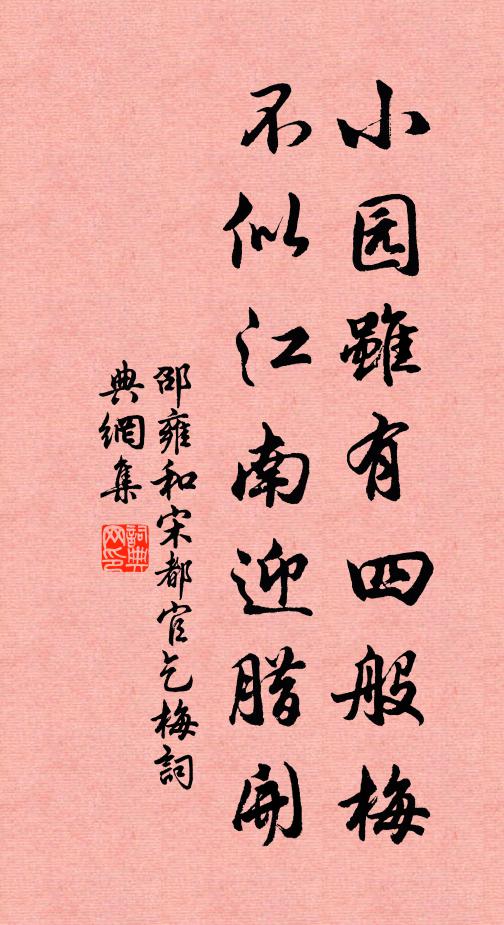 小园雖有四般梅
不似江南迎腊開
邵雍和宋都官乞梅詞
典網集
詞典网印